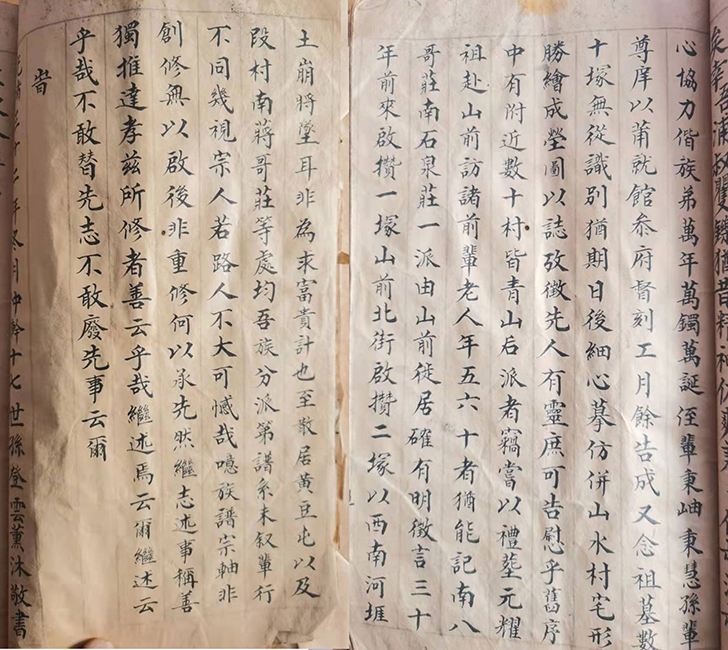 心協力偕族弟萬年萬鐲萬誕侄輩秉岫秉慧孫輩
尊庠以莆就館叅府督刻工月餘告成又念祖墓數
十塚無從識別猶期日後細心摹仿併山水村宅形
勝繪成塋圖以誌攷徵先人有靈庶可告慰乎舊序
中有附近數十村皆青山后派者竊當以禮塟元耀
祖赴山前訪諸前輩老人年五六十者猶能記南八
哥莊南石泉莊一派由山前徙居確有明徵言三十
年前來啟攢一塚山前北街啟攢二塚以西南河堐
土崩將墜耳非為求富貴計也至散居黃豆屯以及
段村南蔣哥莊等處均吾族分派第譜系未叙輩行
不同幾視宗人若路人不大可憾哉噫族譜宗軸非
創修無以啟後非重修何以承先然繼志述事稱善
獨推達孝兹所修者善云乎哉繼述焉云爾繼述云
乎哉不敢替先志不敢廢先事云爾
旹
年冬月中幹十七世孫登雲薰沐敬書